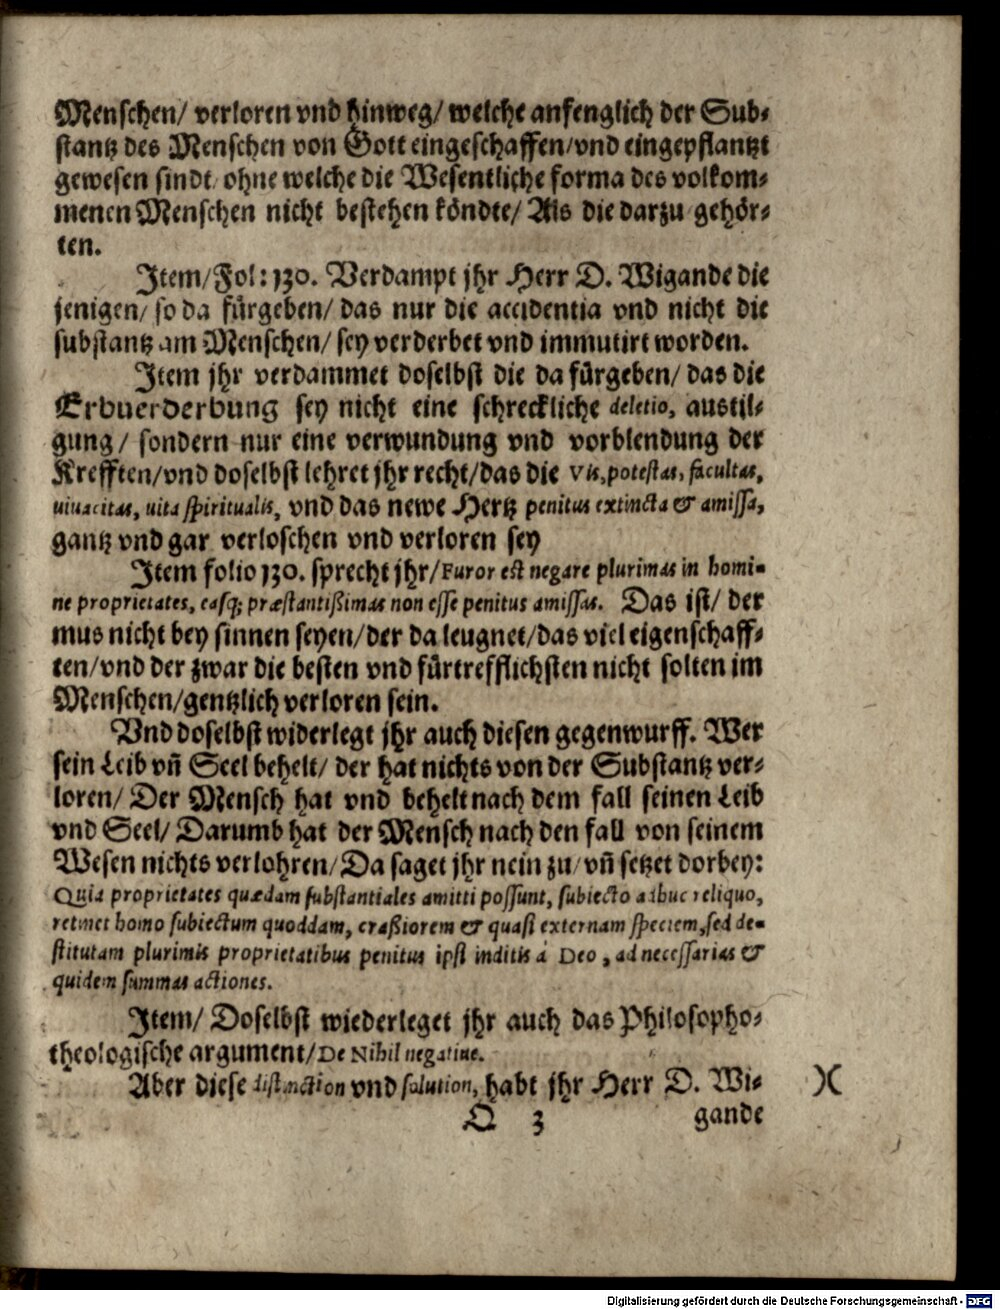 Menschen/ verloren vnd hinweg/ welche anfenglich der Sub-
stantz des Menschen von Gott eingeschaffen/vnd eingepflantzt
gewesen sindt/ ohne welche die Wesentliche forma des volkom-
menen Menschen nicht bestehen köndte/ Als die darzu gehör-
ten.
Item/Fol: 130. Verdampt jhr Herr D. Wigande die
jenigen/ so da fürgeben/ das nur die accidentia vnd nicht die
substantz am Menschen/ sey verderbet vnd immutirt worden.
Item jhr verdammet doselbst die da fürgeben/ das die
Erbuerderbung sey nicht eine schreckliche deletio, austil-
gung/ sondern nur eine verwundung vnd vorblendung der
Krefften/vnd doselbst lehret jhr recht/das die Vis, potestas, facultas,
uiuacitas, uita spiritualis, vnd das newe Hertz penitus extincta & amissa,
gantz vnd gar verloschen vnd verloren sey
Item folio 130. sprecht jhr/Furor est negare plurimas in homi-
ne proprietates, easq; præstantißimas non esse penitus amissas. Das ist/ der
mus nicht bey sinnen seyen/der da leugnet/das viel eigenschaff-
ten/vnd der zwar die besten vnd fürtrefflichsten nicht solten im
Menschen/gentzlich verloren sein.
Vnd doselbst widerlegt jhr auch diesen gegenwurff. Wer
sein Leib vñ Seel behelt/ der hat nichts von der Substantz ver-
loren/ Der Mensch hat vnd behelt nach dem fall seinen Leib
vnd Seel/ Darumb hat der Mensch nach den fall von seinem
Wesen nichts verlohren/Da saget jhr nein zu/ vñ setzet dorbey:
Quia proprietates quædam substantiales amitti possunt, subiecto adhuc reliquo,
retinet homo subiectum quoddam, craßiorem & quasi externam speciem, sed de-
stitutam plurimis proprietatibus penitus ipsi inditis á Deo, ad necessarias &
quidem summas actiones.
Item/ Doselbst wiederleget jhr auch das Philosopho-
theologische argument/De Nihil negatiue.
Aber diese distinction vnd solution, habt jhr Herr D. Wi-
Q 3 gande
Digitalisierung gefördert durch die Deutsche Forschungsgemeinschaft - DFG